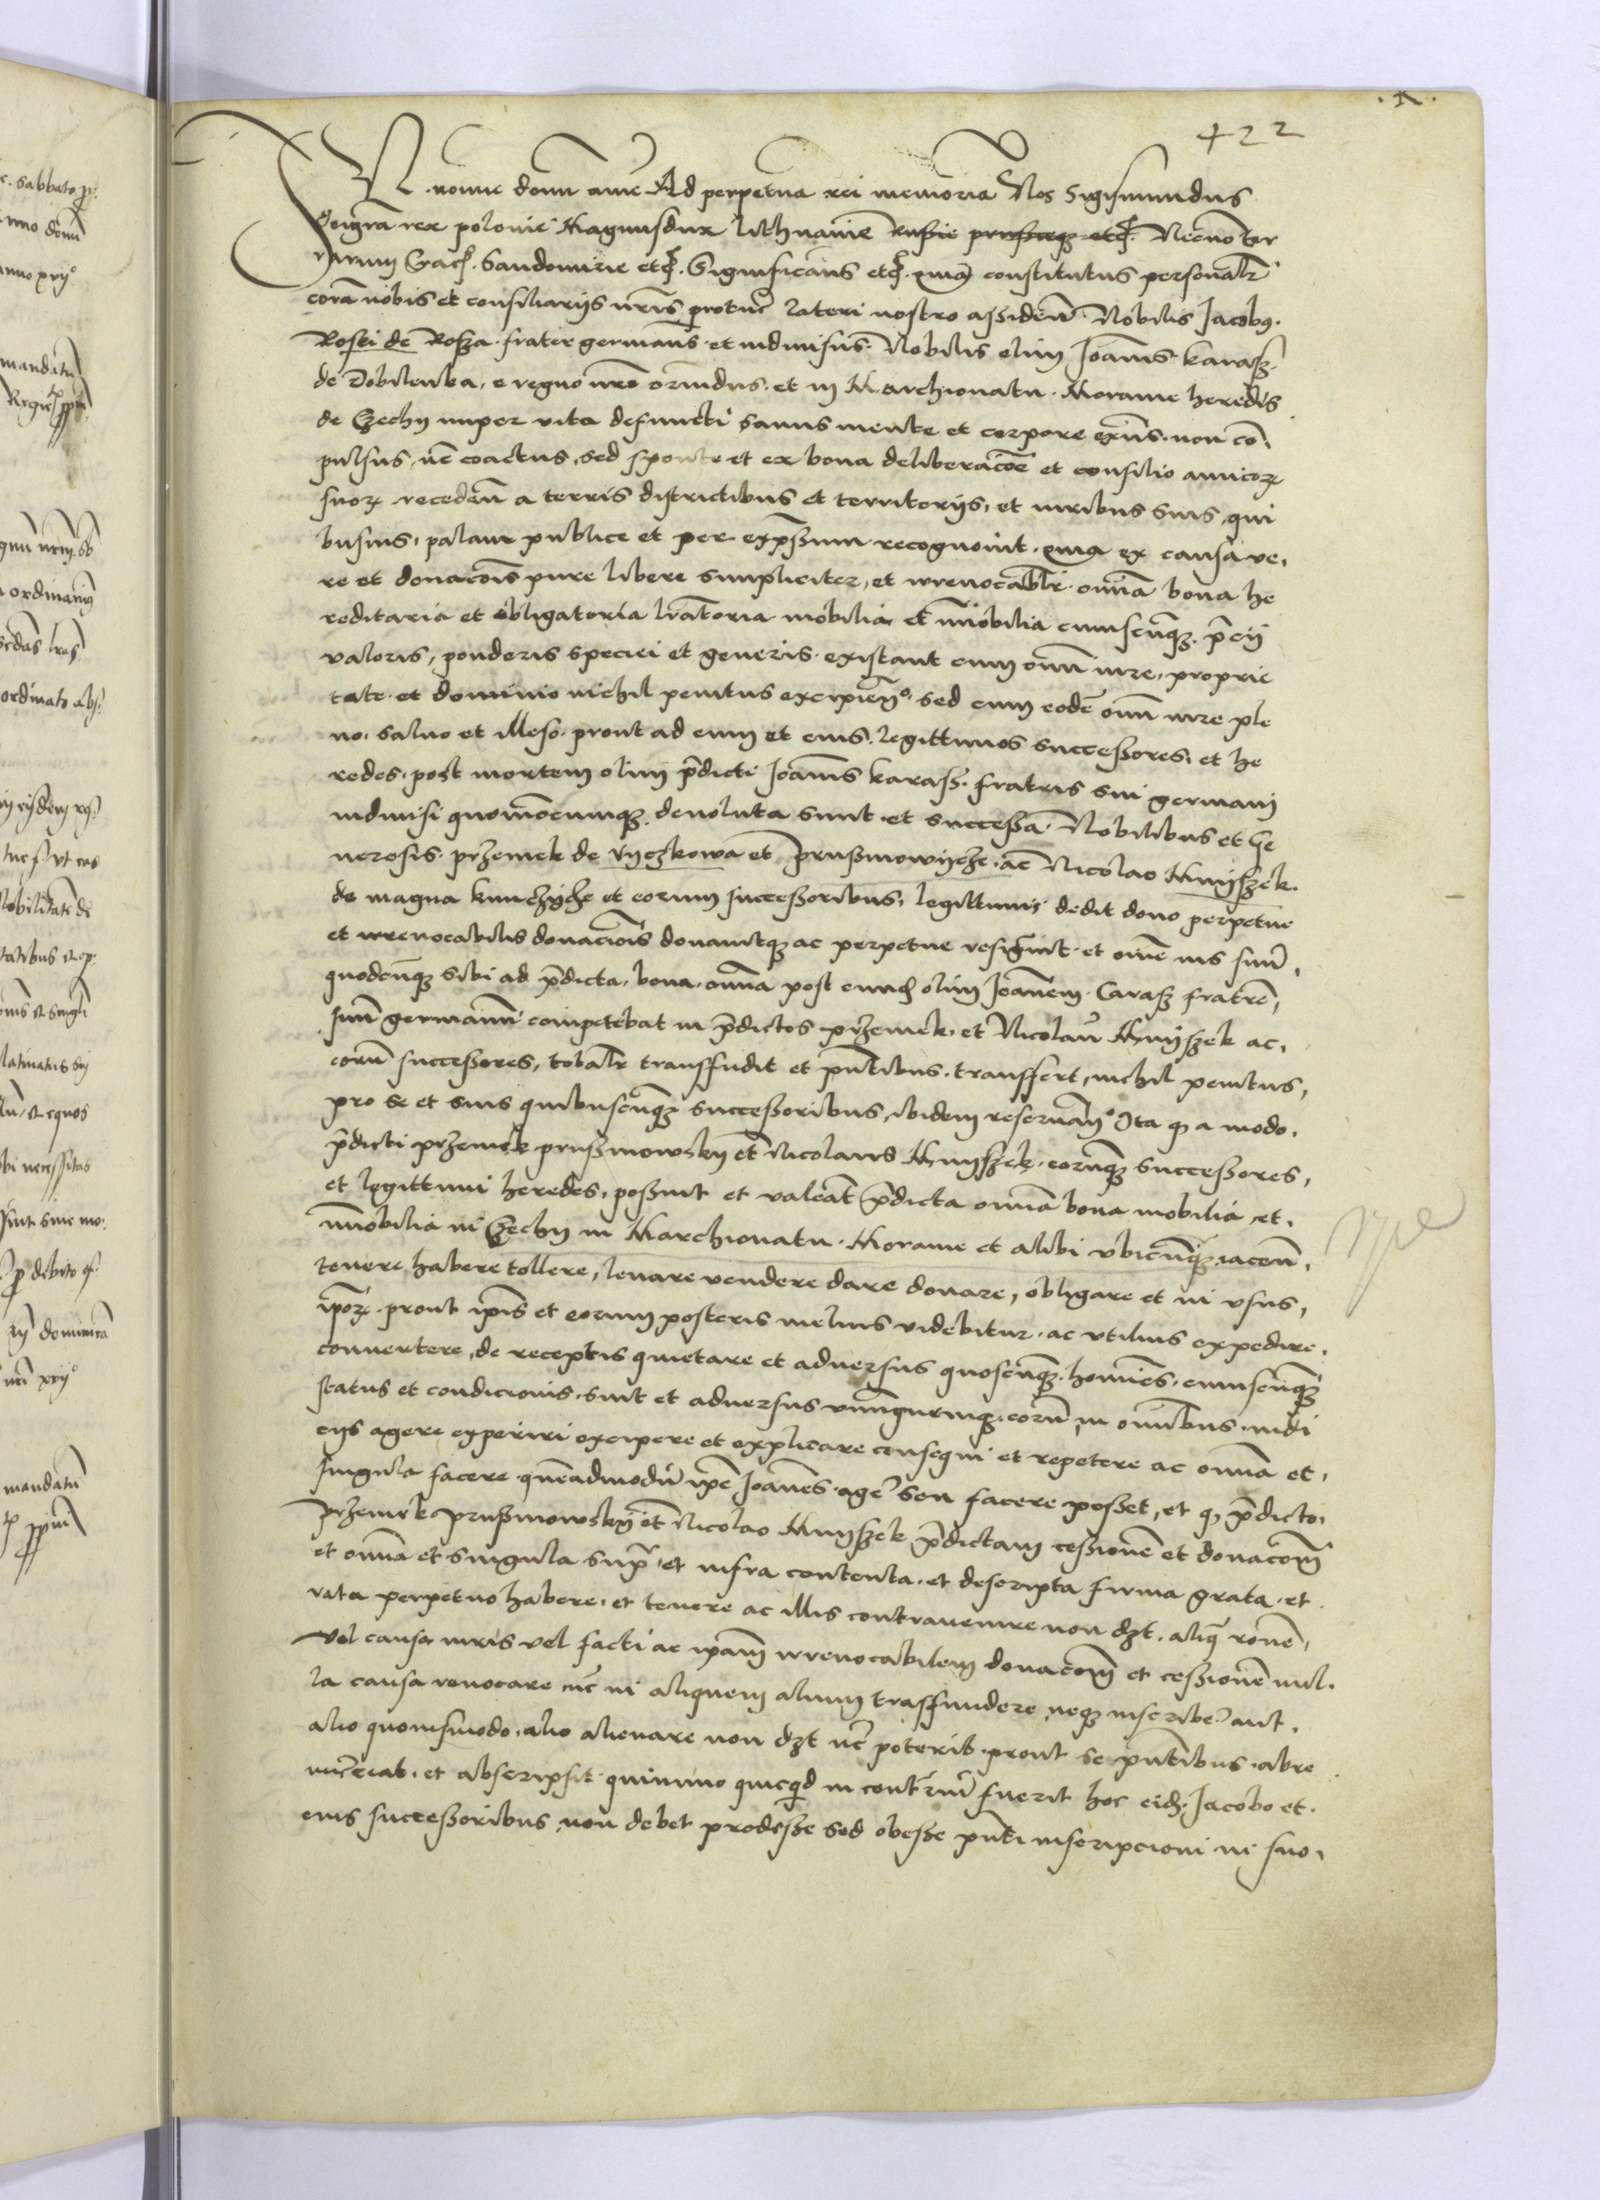 422
In nomīe domī amē Ad perpetuā rei memoriā Nos Sigismundus
Dei grā rex polonie Magnusdux lithuanie Russie prussieq etc. Necnō ter
rarum Crac. Sandomirie etc. Significams etc. quia constitutus personalr
corā nobis et consiliariis nris protūc lateri nostro assideñ Nobilis Jacobus
Roski de Rosza frater germans et indiuisus Nobilis olim Joānis karassz
de Dobilenka, e regno nro oriundus et in Marchionatu Morauie heredis
de Czechy nuper vita defuncti sanus mente et corpore exñs non cō
pulsus, nec coactus, sed sponte et ex bona deliberacōe et consilio amicorꝫ
suorꝫ recedeñ a terris districtibus et territoriis, et iuribus suis, qui
busuis, palam publice et per expssum recognouit, quia ex causa ve
re et donacōis pure libere simpliciter, et irreuocablr omia bona he
reditaria et obligatoria lratoria mobilia et imobilia cuiuscūqꝫ pcii
valoris, ponderis speciei et generis existant cum omi iure, proprie
tate et dominio nichil penitus excipieñ sed cum eodē omi iure ple
no, saluo et illeso prout ad eum et eius legittimos successores, et he
redes, post mortem olim pdicti Joānis karassz fratris sui germani
indiuisi quomōcumqꝫ deuoluta sunt et successa Nobilibus et Ge
nerosis przemek de vyczkowa et Prusinowijcze, ac Nicolao Mnyszek
de magna kunczycze et eorum successoribus, legittimis dedit dono perpetue
et irreuocabilis donacionis donauitqꝫ ac perpetue resigūit et omē ius suū
quodcūqꝫ sibi ad pdicta bona omia post eund olim Joānem Carassz fratrē
suū germanū competebat in pdictos przemek et Nicolaū Mnyszek ac
eorū successores, totalr transfudit et pntibus transfert, nichil penitus
pro se et suis quibuscūqꝫ successoribus, ibidem reseruañ Ita q a modo
pdicti przemek prusinowsky et Nicolaus Mnyszek eorūqꝫ successores
et legittimi heredes, possint et valeāt pdicta omia bona mobilia et
imobilia in Czechy in Marchionatu Morauie et alibi vbicūqꝫ iaceñ
tenere habere tollere, leuare vendere dare donare, obligare et in vsus
ipōrꝫ prout ipīs et eorum posteris melius videbitur ac vtilius expedire
conuertere, de receptis quietare et aduersus quoscūqꝫ homīes cuiuscūqꝫ
status et condicionis sint et aduersus vnūquemqꝫ eorū in omībus iudi
ciis agere experiri excipere et explicare consequi et repetere ac omīa et
singula facere quēadmodū ipē Joānes age seu facere posset, et q pdicto
Przemek prusinowsky et Nicolao Mnyszek pdictam cessionē et donacōm
et omīa et singula supra et infra contenta et descripta firma grata et
rata perpetuo habere et tenere ac illis contrauenire non dꝫt aliq rōne
vel causa iuris vel facti ac ipām irreuocabilem donacōm et cessionē nul
la causa reuocare nec in aliquem alium trasfundere neqꝫ inscribe aut
alio quouismodo alio alienare non dꝫt nec poterit prout se pntibus abre
nūcciat et abscripsit quinimo quicqd in contriū fuerit hoc eid Jacobo et
eius successoribus non debet prodesse sed obesse pnti inscripcioni in suo